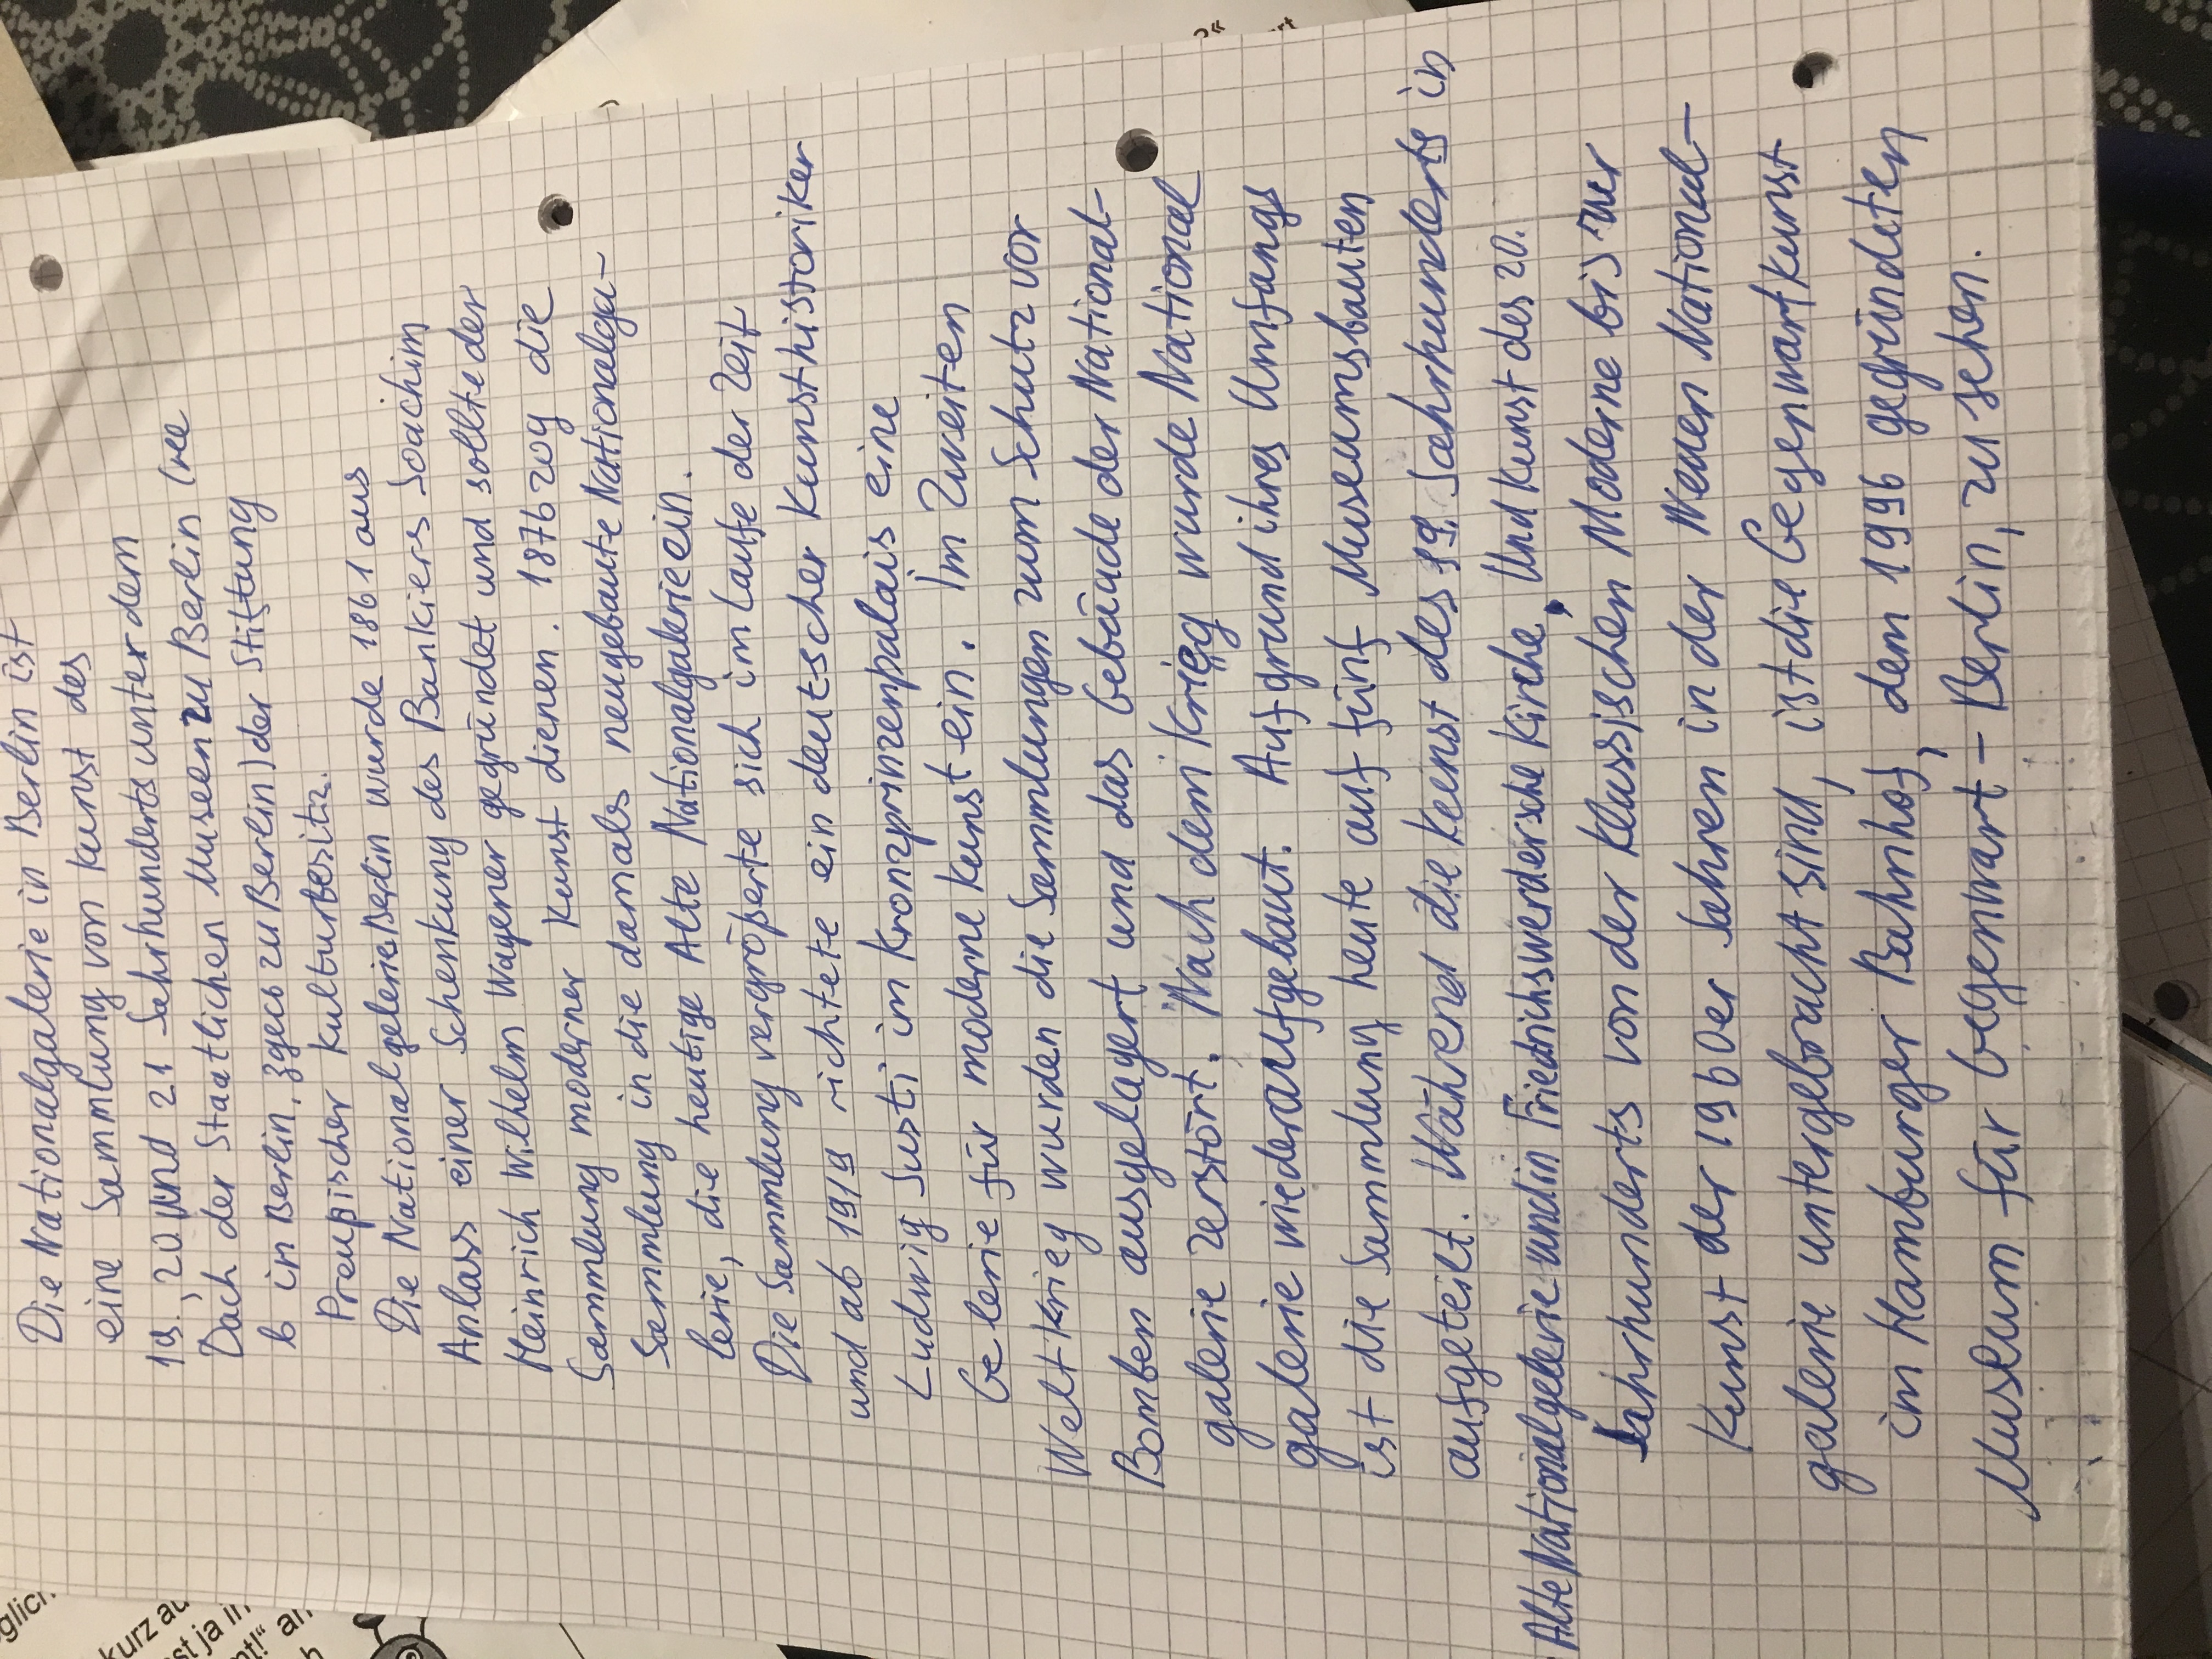 Die Nationalgalerie in Berlin ist
eine Sammlung von Kunst des
19., 20 und 21 Jahrhunderts unter dem
Dach der Staatlichen Museen zu Berlin
im Berlin, zu Berlin) der Stiftung
Preußischer Kulturbesitz.
Die Nationalgalerie Berlin wurde 1861 aus
Anlass einer Schenkung des Bankiers Joachim
Heinrich Wilhelm Wagener gegründet und sollte der
Sammlung moderner Kunst dienen. 1876 zog die
Sammlung in die damals neugebaute Nationalga-
lerie, die heutige Alte Nationalgalerie ein.
Die Sammlung vergrößerte sich im Laufe der Zeit
und ab 1919 richtete ein deutscher Kunsthistoriker
Ludwig Justi im Kronzprinzenpalais eine
Galerie für moderne Kunst ein. Im Zweiten
Weltkrieg wurden die Sammlungen zum Schutz vor
Bomben ausgelagert und das Gebäude der National-
galerie zerstört. Nach dem Krieg wurde National
galerie wiederaufgebaut. Aufgrund ihres Umfangs
ist die Sammlung heute auf fünf Museumsbauten
aufgeteilt. Während die Kunst des 19. Jahrhunderts in
Alte Nationalgalerie und in Friedrichswerdersche Kirche, Und Kunst des 20.
Jahrhunderts von der Klassischen Moderne bis zur
Kunst der 1960er Jahren in der Neuen National-
galerie untergebracht sind, ist die Gegenwartkunst
im Hamburger Bahnhof, dem 1996 gegründeten
Museum für Gegenwart - Berlin, zu sehen.
kurz au
st ja in
nt!“ an